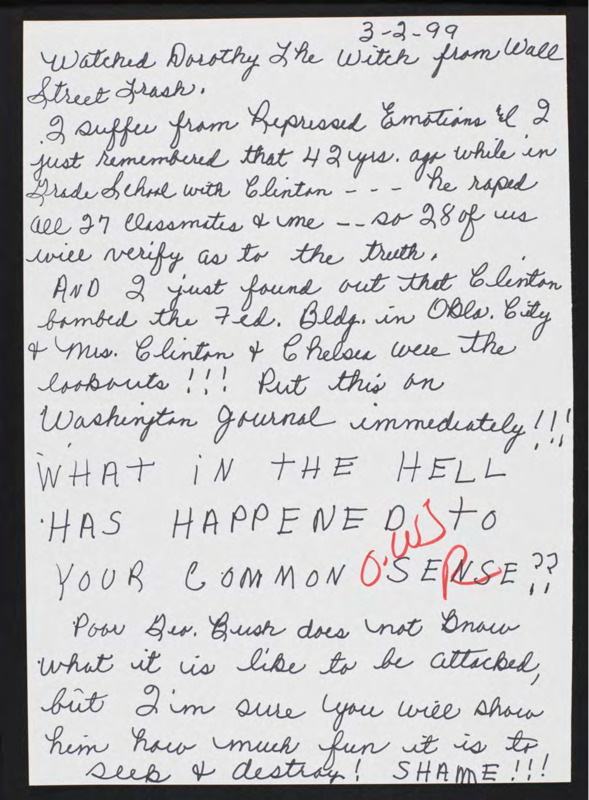 3-2-99
Watched Dorothy The Witch from Wall
Street Trash.
I suffer from Repressed Emotions & I
just remembered that 42 yrs. ago while in
Grade School with Clinton - - - he raped
all 27 classmates & me -- so 28 of us
will verify as to the truth.
AND I just found out that Clinton
bombed the Fed. Bldg. in Okla. City
& Mrs. Clinton & Chelsea were the
lookouts !!! Put this on
Washington Journal immediately!!!
WHAT IN THE HELL
HAS HAPPENED to
YOUR COMMON SENSE ??
Poor Geo. Bush does not know
what it is like to be attacked,
but I'm sure you will show
him how much fun it is to
seek & destroy! SHAME !!!